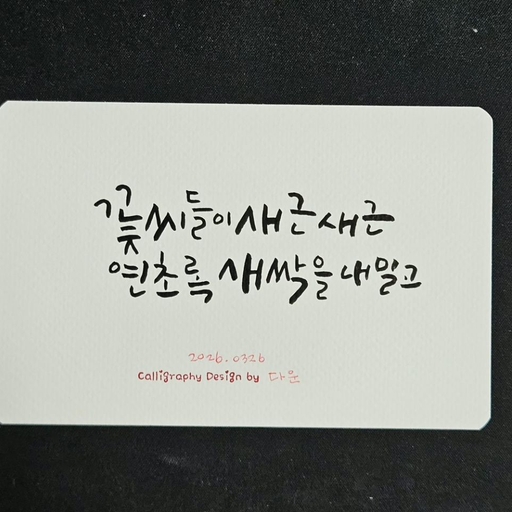 꽃씨들이 새근새근
연초록 새싹을 내밀고
2026.0326
Calligraphy Design by 다운